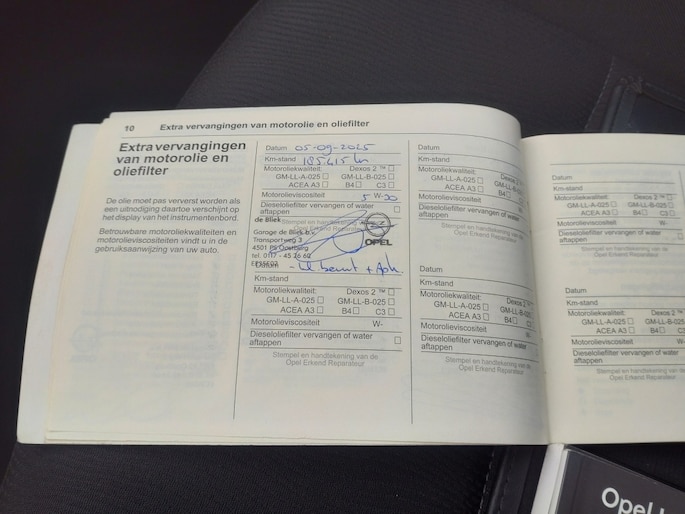 10 Extra vervangingen van motorolie en oliefilter
Extra vervangingen
van motorolie en
oliefilter
De olie moet pas ververst worden als
een uitnodiging daartoe verschijnt op
het display van het instrumentenbord.
Betrouwbare motoroliekwaliteiten en
motorolieviscositeiten vindt u in de
gebruiksaanwijzing van uw auto.
Datum 05-09-2025
Km-stand 185.415 km
Motoroliekwaliteit: Dexos 2 ™ ☐
GM-LL-A-025 ☐ GM-LL-B-025 ☐
ACEA A3 ☐ B4 ☐ C3 ☐
Motorolieviscositeit 5 W-30
Dieseloliefilter vervangen of water
aftappen ☐
Stempel en handtekening van de
de Bliek
Garage de Bliek b.v.
Transportweg 3
4501 PS Oostburg
tel. 0117 - 45
OPEL
Datum
Km-stand
Motoroliekwaliteit: Dexos 2 ™ ☐
GM-LL-A-025 ☐ GM-LL-B-025 ☐
ACEA A3 ☐ B4 ☐ C3 ☐
Motorolieviscositeit W-
Dieseloliefilter vervangen of water
aftappen ☐
Stempel en handtekening van de
Opel Erkend Reparateur
Datum
Km-stand
Motoroliekwaliteit: Dexos 2 ™
GM-LL-A-025 ☐ GM-LL-B-025
ACEA A3 ☐ B4 ☐ C3
Motorolieviscositeit W-
Dieseloliefilter vervangen of water
aftappen
Stempel en handtekening van de
Opel Erkend Reparateur
Datum
Km-stand
Motoroliekwaliteit: Dexos 2
GM-LL-A-025 ☐ GM-LL-B-025
ACEA A3 ☐ B4 ☐ C3
Motorolieviscositeit W-
Dieseloliefilter vervangen of water
aftappen
Stempel en handtekening van de
Opel Erkend Reparateur
Datum
Km-stand
Motoroliekwaliteit: Dexos 2 ™ ☐
GM-LL-A-025 ☐ GM-LL-B-025 ☐
ACEA A3 ☐ B4 ☐ C3 ☐
Motorolieviscositeit W-
Dieseloliefilter vervangen of water
aftappen
Stempel en handtekening van de
Opel Erkend Reparateur
Datum
Km-stand
Motoroliekwaliteit: Dexos 2 ™
GM-LL-A-025 ☐ GM-LL-B-025
ACEA A3 ☐ B4 ☐ C3 ☐
Motorolieviscositeit W-
Dieseloliefilter vervangen of water
aftappen
Stempel en handtekening van de
Opel Erkend Reparateur
Opel